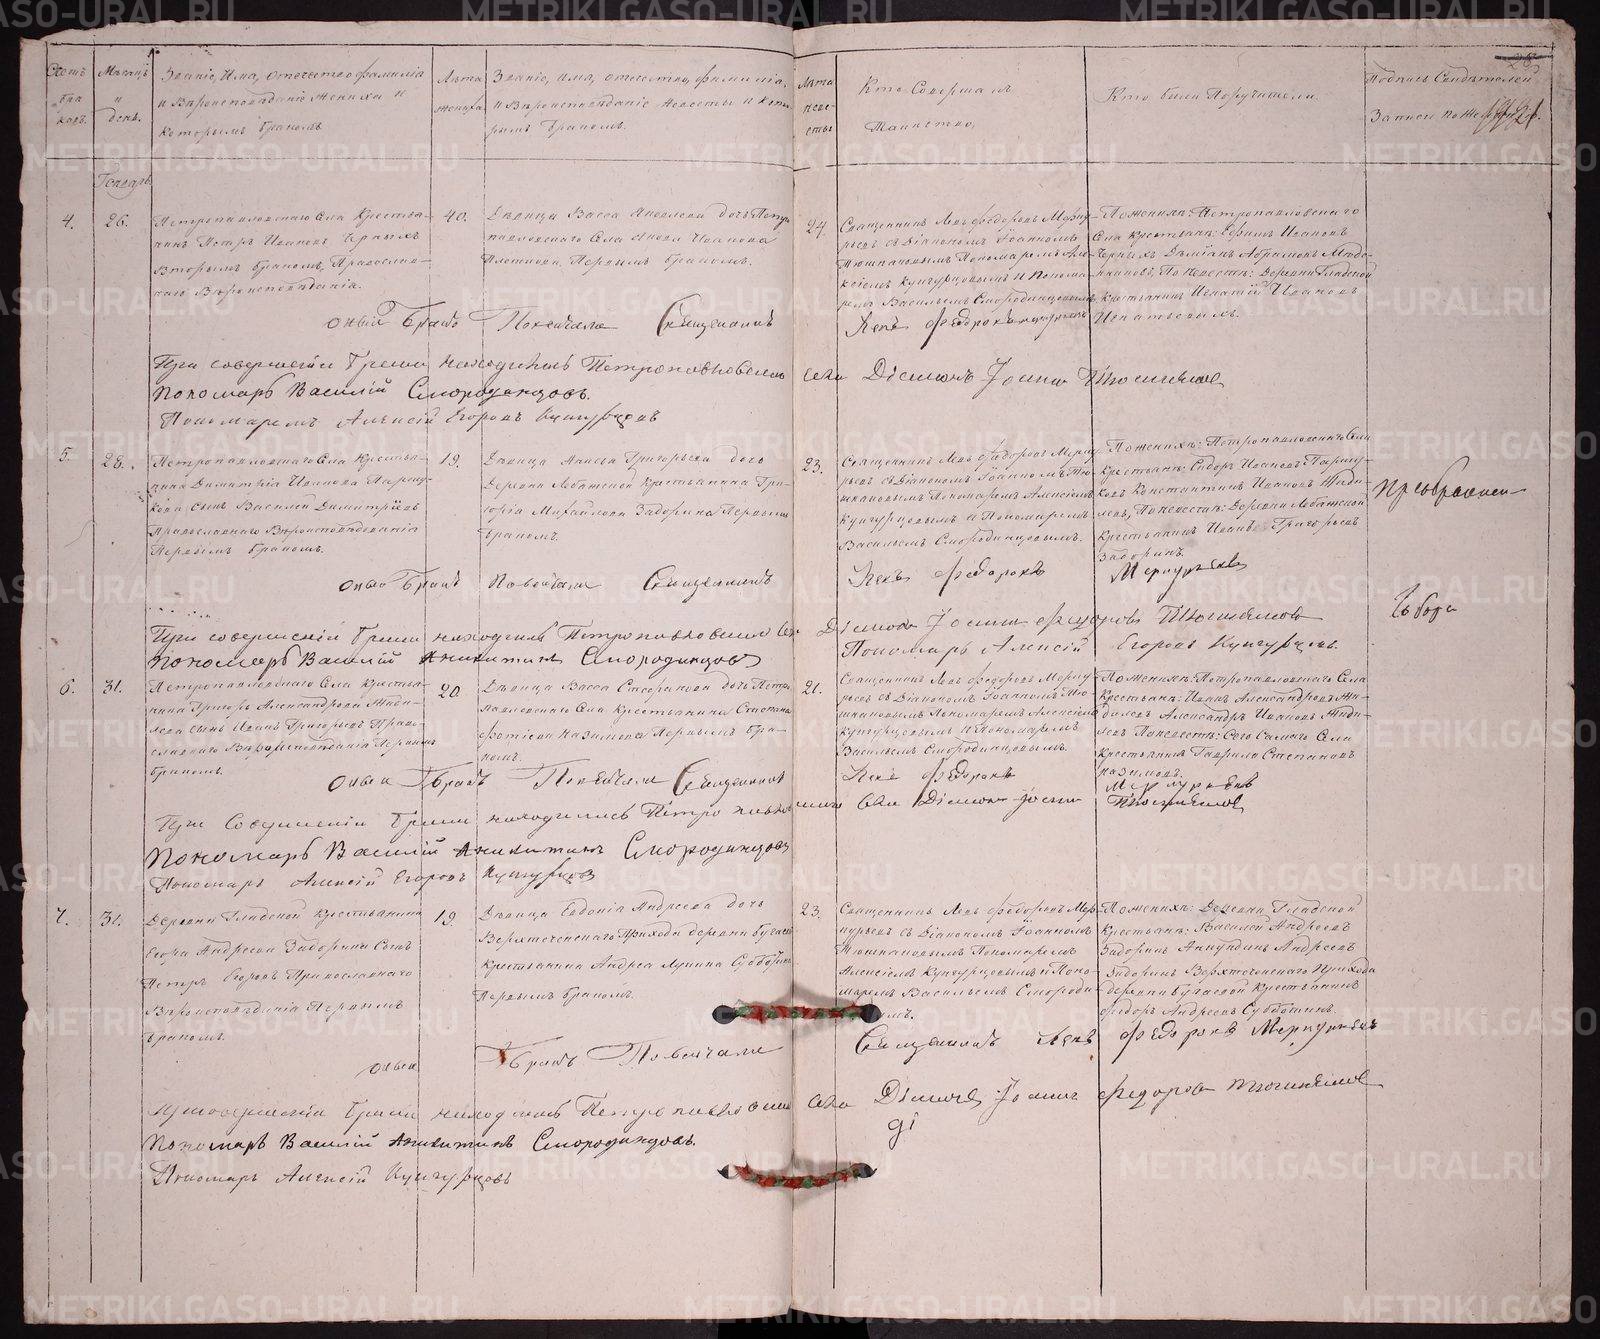 Счетъ браковъ.
Мѣсяцъ и день.
Званіе, Имя, отечество фамилія
и Вѣроисповѣданіе Жениха и
которымъ бракомъ
Лѣта жениха
Званіе, имя, отечество, фамилія,
и Вѣроисповѣданіе невѣсты и кото-
рымъ бракомъ.
Лѣта невѣсты
Кто Совершалъ
Таинство,
Кто были Поручители.
Подпись Свидѣтелей
Записи
Генварь
4.
26.
Петропавловскаго Села Крестья-
нинъ Петръ Ивановъ Черныхъ
Вторымъ бракомъ, Православ-
наго Вѣроисповѣданія.
40.
Дѣвица Васса Яковлева дочь Петро
павловскаго Села Якова Иванова
Плотникова Первымъ бракомъ.
24.
Священникъ Левъ Федоровъ Мерку-
рьевъ съ Діакономъ Іоанномъ
Тюшняковымъ Пономаремъ Але
ксіемъ Кунгурцовымъ и Понома-
ремъ Васильемъ Смородинцовымъ
По женихѣ: Петропавловскаго
Села Крестьяне: Ефимъ Ивановъ
Черныхъ Демьянъ Абрамовъ
По невѣстѣ: Деревни Гладской
Крестьянинъ Игнатій Ивановъ
Игнатьевыхъ.
Оный Бракъ Повенчалъ Священникъ
Левъ Федоровъ
При совершеніи Брака находился Петропавловскаго
села Діаконъ Іоаннъ
Пономарь Василій Смородинцовъ.
Пономарь Алексій Егоровъ Кунгурцовъ
5.
28.
Петропавловскаго Села Крестья-
нина Димитрія Иванова
сынъ Василій Димитріевъ
Православнаго Вѣроисповѣданія
Первымъ бракомъ.
19.
Дѣвица Анисья Григорьева дочь
Деревни крестьянина Гри-
горія Михайлова Задорина Первымъ
бракомъ.
23.
Священникъ Левъ Федоровъ Мерку
рьевъ съ Діакономъ Іоанномъ Тю-
шняковымъ Пономаремъ Алексіемъ
Кунгурцовымъ и Пономаремъ
Васильемъ Смородинцовымъ.
По женихѣ: Петропавловскаго Села
Крестьяне: Сидоръ Ивановъ
Константинъ Ивановъ
По невѣстѣ: Деревни
Крестьянинъ Иванъ Григорьевъ
Задоринъ.
Оный Бракъ Повенчалъ Священникъ
Левъ Федоровъ Меркурьевъ
При совершеніи Брака находился Петропавловскаго
Діаконъ Іоаннъ Федоровъ Тюшняковъ
Пономарь Василій Аникитинъ Смородинцовъ
Пономарь Алексій Егоровъ Кунгурцовъ.
6.
31.
Петропавловскаго Села Крестья-
нина Григорья Александрова
сынъ Иванъ Григорьевъ Право-
славнаго Вѣроисповѣданія Первымъ
бракомъ.
20.
Дѣвица Васса Стефанова дочь Петро
павловскаго Села Крестьянина Степана
Назимова Первымъ Бра-
комъ.
21.
Священникъ Левъ Федоровъ Мерку-
рьевъ съ Діакономъ Іоанномъ Тю-
шняковымъ Пономаремъ Алексіемъ
Кунгурцовымъ и Пономаремъ
Васильемъ Смородинцовымъ.
По женихѣ: Петропавловскаго Села
Крестьяне: Иванъ Александровъ
Александръ Ивановъ
По невѣстѣ: Сего Самаго Села
Крестьянинъ Гаврила Степановъ
Назимовъ.
Оный Бракъ Повенчалъ Священникъ
Левъ Федоровъ Меркурьевъ
При Совершеніи Брака находился Петропавловскаго
Села Діаконъ Іоаннъ Тюшняковъ
Пономарь Василій Аникитинъ Смородинцовъ
Пономарь Алексій Егоровъ Кунгурцовъ
7.
31.
Деревни Гладской Крестьянина
Егора Андреева Задорина Сынъ
Петръ Егоровъ Православнаго
Вѣроисповѣданія Первымъ
бракомъ.
19.
Дѣвица Евдокія Андреева дочь
Верхтеченскаго Прихода деревни Бугаев
Крестьянина Андрея Лукина Субботина
Первымъ бракомъ.
23.
Священникъ Левъ Федоровъ Мер-
курьевъ съ Діакономъ Іоанномъ
Тюшняковымъ Пономаремъ
Алексіемъ Кунгурцовымъ и Поно-
маремъ Васильемъ Смороди-
По женихѣ: Деревни Гладской
Крестьяне: Василей Андреевъ
Задоринъ Анкундинъ Андреевъ
Задоринъ Верхтеченскаго Прихода
деревни Бугаевой Крестьянинъ
Федоръ Андреевъ Субботинъ.
Оный Бракъ Повенчалъ
Священникъ Левъ Федоровъ Меркурьевъ
При совершеніи Брака находился Петропавловскаго
села Діаконъ Іоаннъ Федоровъ Тюшняковъ
Пономарь Василій Аникитинъ Смородинцовъ.
Пономарь Алексій Кунгурцовъ
METRIKI.GASO-URAL.RU